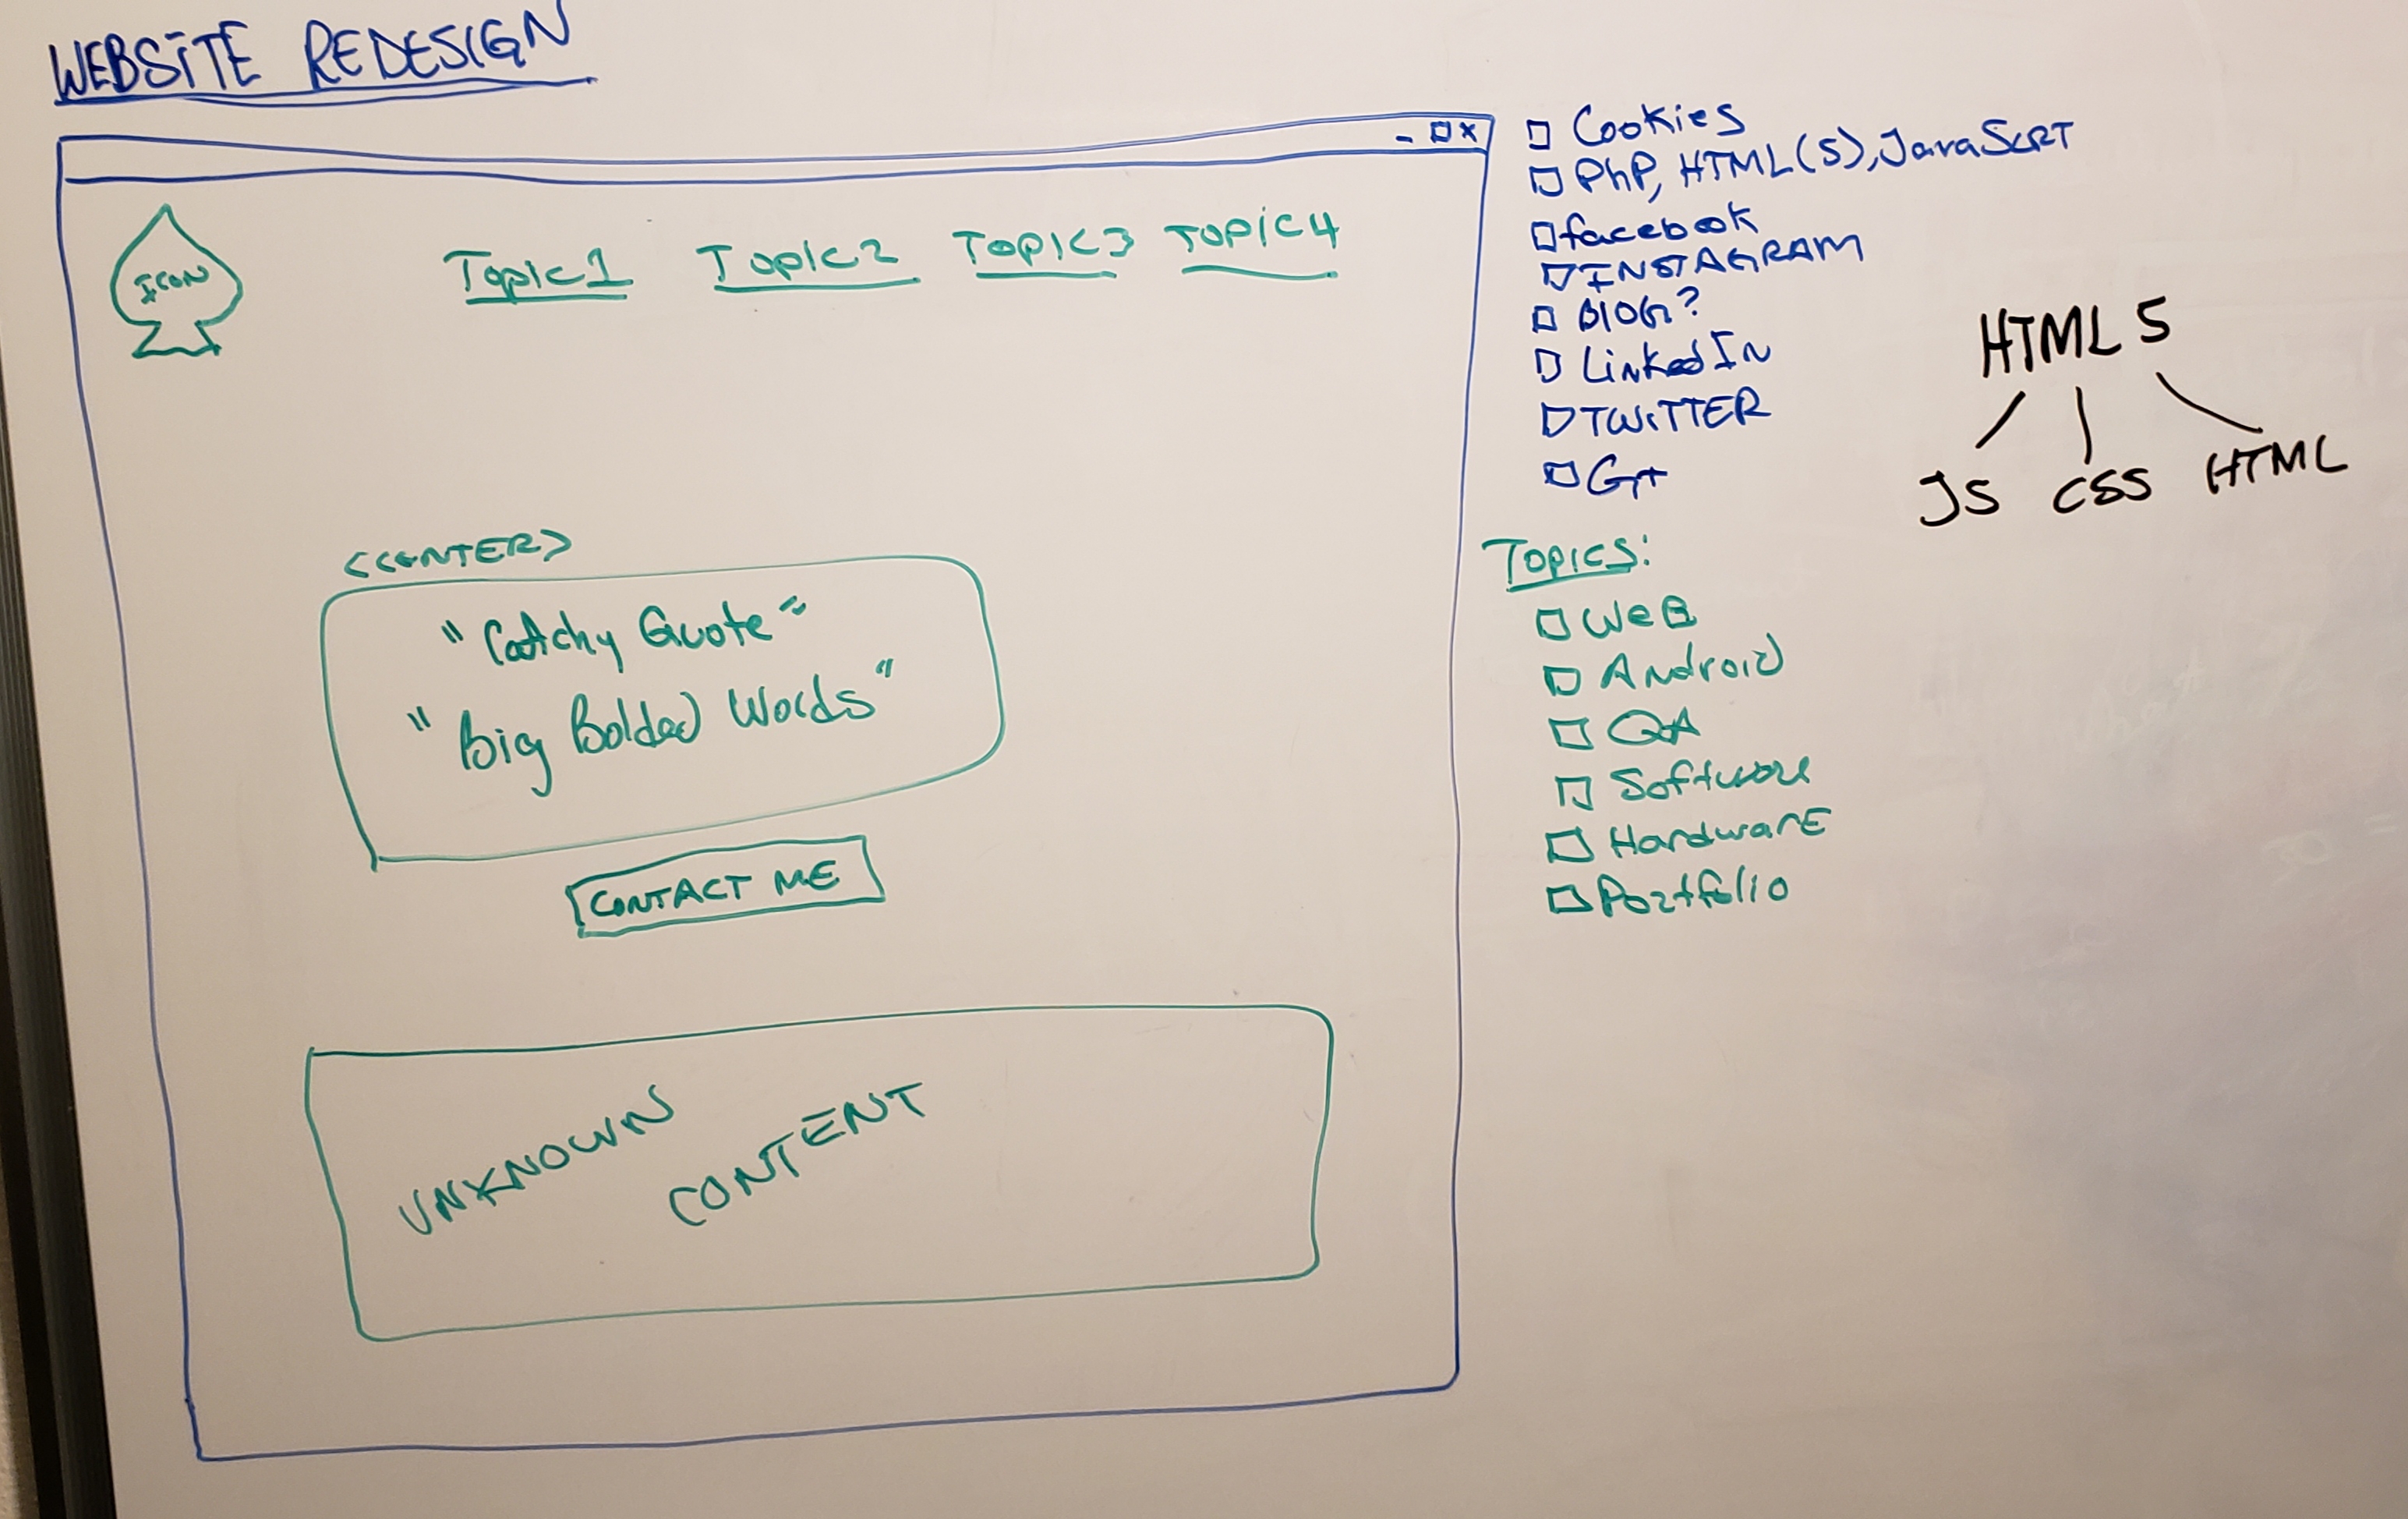 WEBSITE REDESIGN
ICON
Topic1 Topic2 Topic3 Topic4
<CENTER>
"Catchy Quote"
"Big Bolded Words"
CONTACT ME
UNKNOWN CONTENT
Cookies
PhP, HTML(5), JavaScrt
facebook
INSTAGRAM
Blog?
LinkedIn
TWITTER
G+
Topics:
Web
Android
QA
Software
Hardware
Portfolio
HTML 5
JS CSS HTML